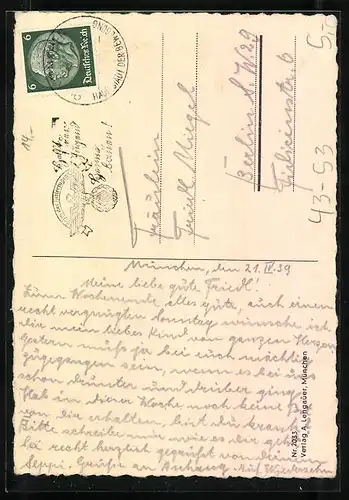 München, den 21. IV. 39
Meine liebe gute Friedl!
Zum Wochenende alles gute, auch einen
recht vergnügten Sonntag wünsche ich
dir mein liebes Kind von ganzen Herzen.
Gestern muß ja bei euch mächtig
zugegangen sein, wenn es bei uns
schon drunter und drüber ging.
Hab in dieser Woche noch keine Post
von dir erhalten, bist du krank?
Bitte schreibe mir wie es dir geht.
Sei recht herzlich gegrüßt von deinem
Seppi. Grüße an Anhang. Auf Wiedersehn
Fräulein
Friedl Miegel
Berlin S.W. 29
6
43-53
6
Deutsches Reich
6
HAUPTSTADT DER BEWEGUNG
Helft
der
Jugend
Heime
bauen!
14.-
Nr. 2033
Verlag A. Lengauer, München